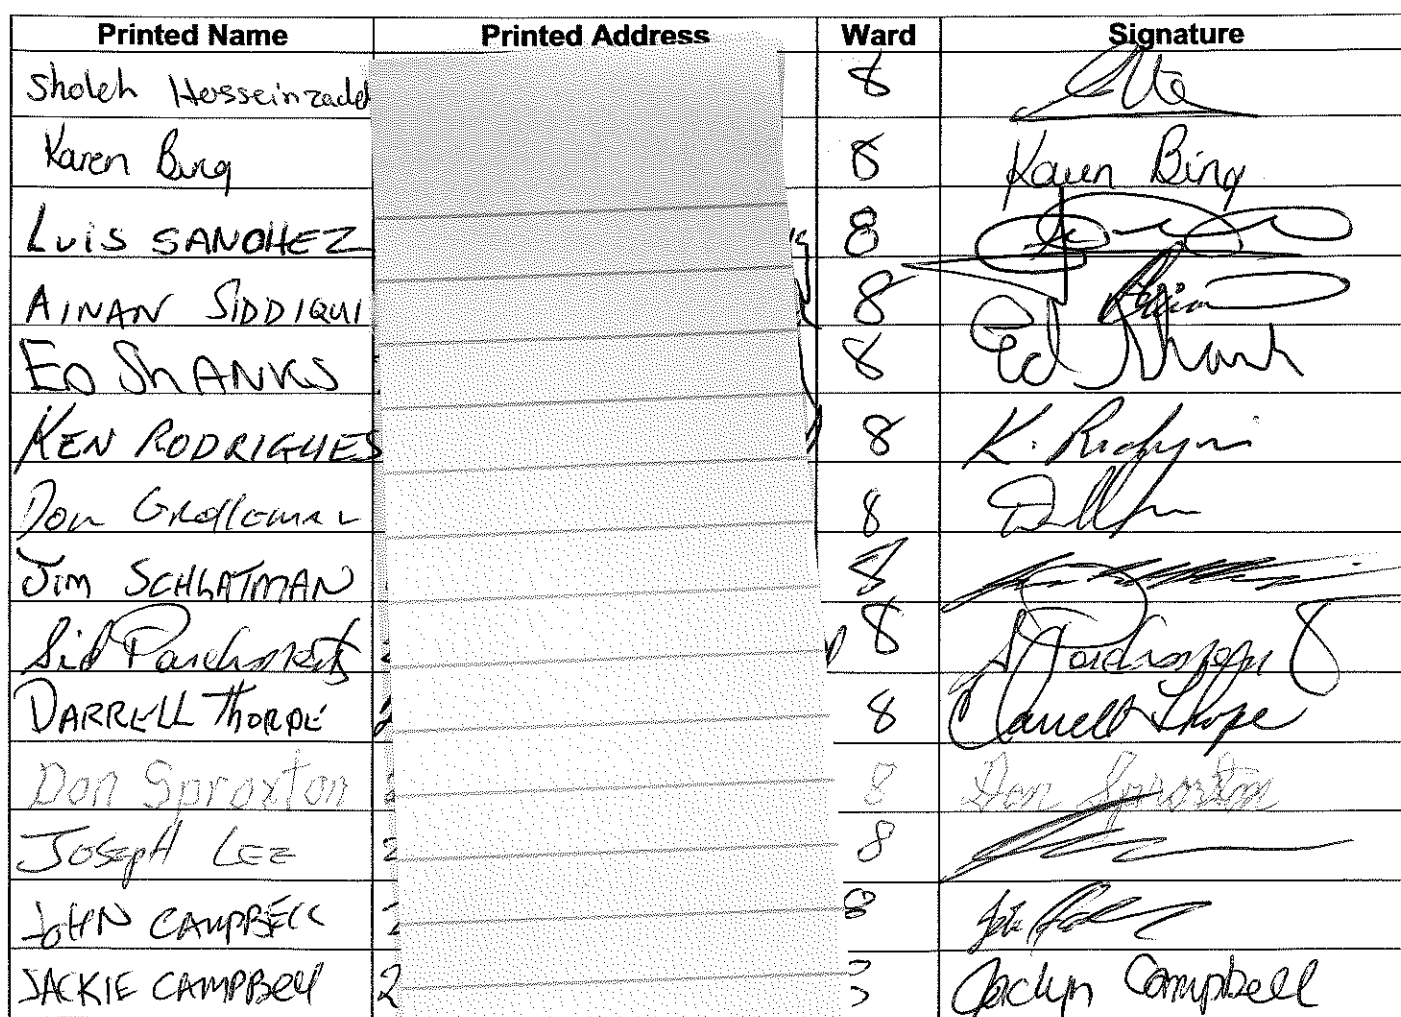 Printed Name Printed Address Ward Signature
Sholeh Hosseinzadeh 8
Karen Bing 8 Karen Bing
LUIS SANCHEZ 8
AINAN SIDDIQUI 8
ED SHANKS 8 Ed Shank
KEN RODRIGUES 8 K. Rodrigues
Don Grolleman 8
JIM SCHLATMAN 8
Sid 8 8
DARRELL THORPE 8 Darrell Thorpe
Don Sproxton 8 Don Sproxton
JOSEPH LEE 2 8
JOHN CAMPBELL 8 John
JACKIE CAMPBELL 2 Jaclyn Campbell